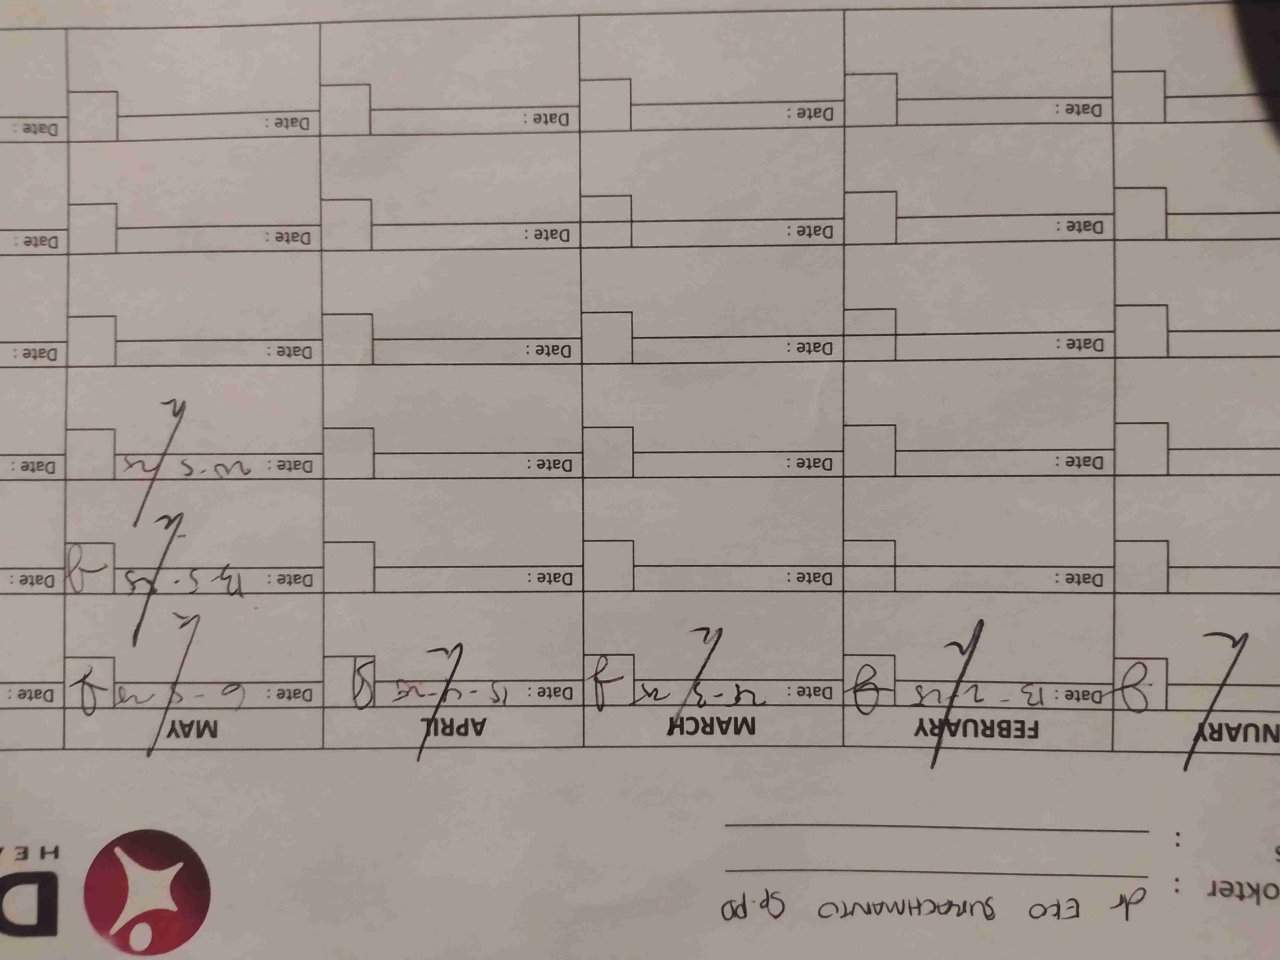 D
HEA
okter : dr EKO SURACHMANTO Sp.PD
s :
NUARY FEBRUARY MARCH APRIL MAY
Date : 13-2-25 Date : Date : 15-4-25 Date : 6-5-25 Date :
Date : Date : Date : Date : 13-5-25 Date :
Date : Date : Date : Date : 20.5.25 Date :
Date : Date : Date : Date : Date :
Date : Date : Date : Date : Date :
Date : Date : Date : Date : Date :